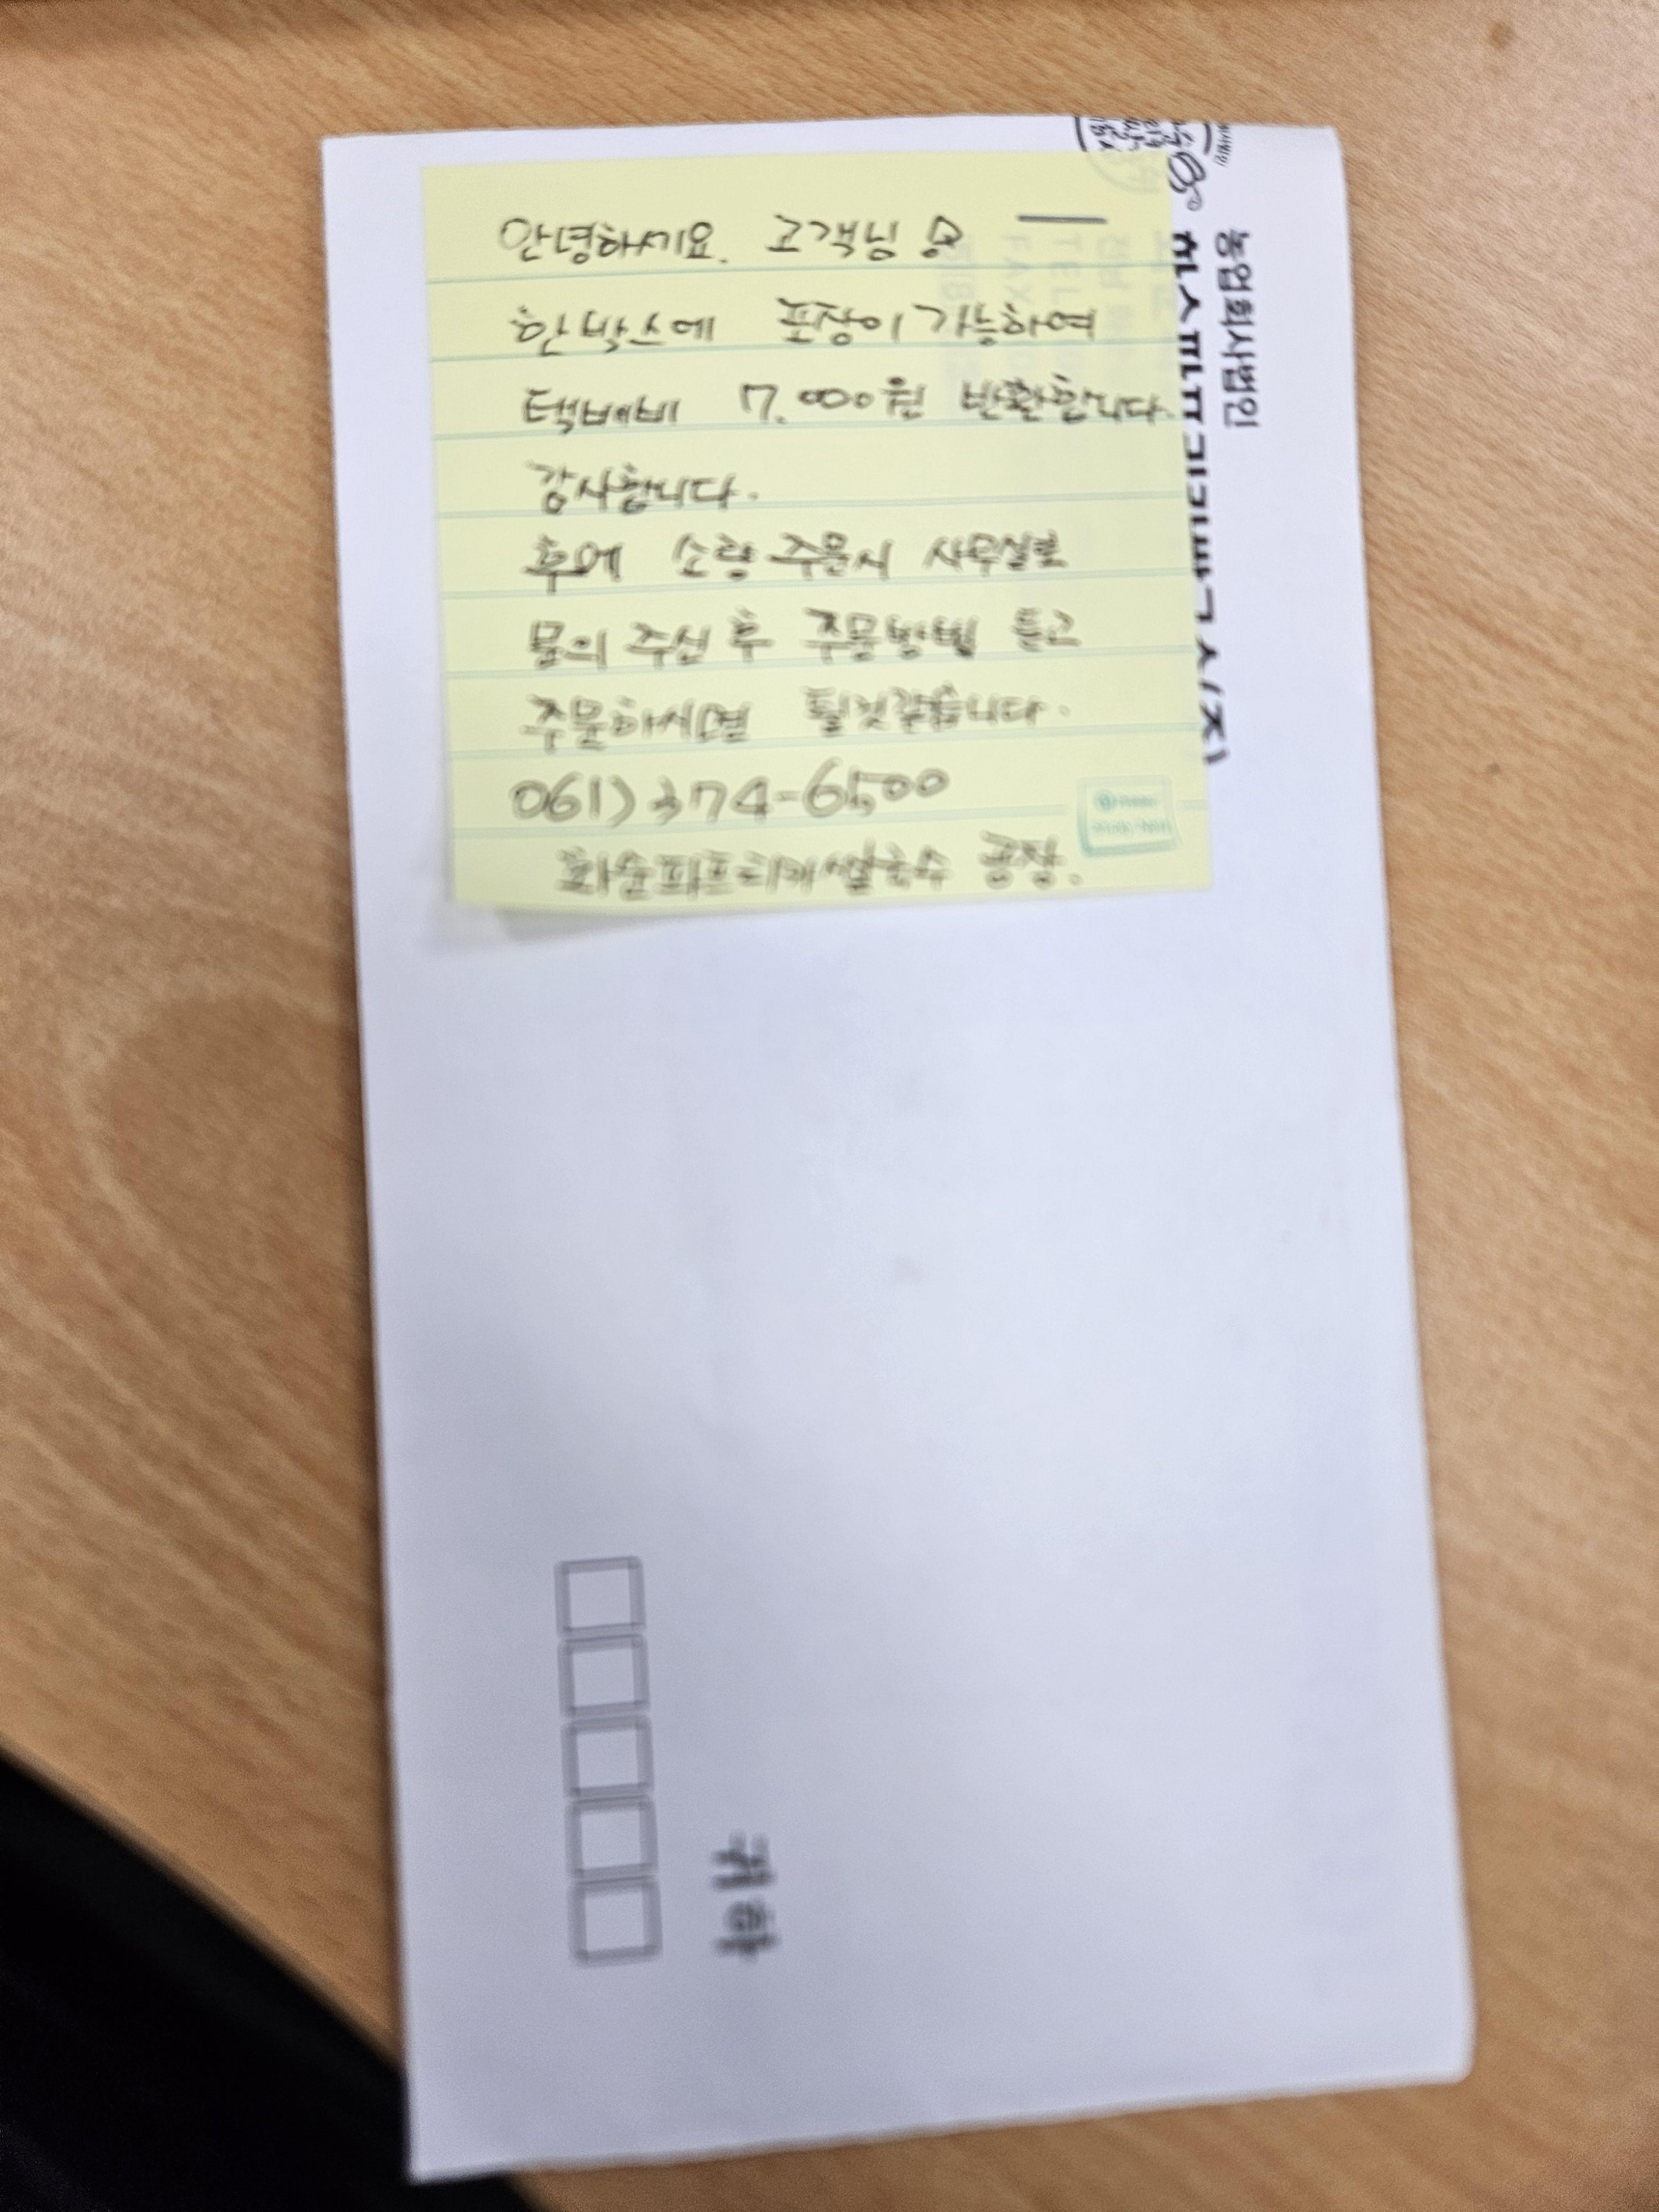 안녕하세요. 고객님
한박스에 포장이 가능하여
택배비 7.000원 반환합니다
감사합니다.
추후에 소량 주문시 사무실로
문의 주신 후 주문방법 듣고
주문하시면 될것같습니다.
061) 374-6500
농업회사법인
귀하